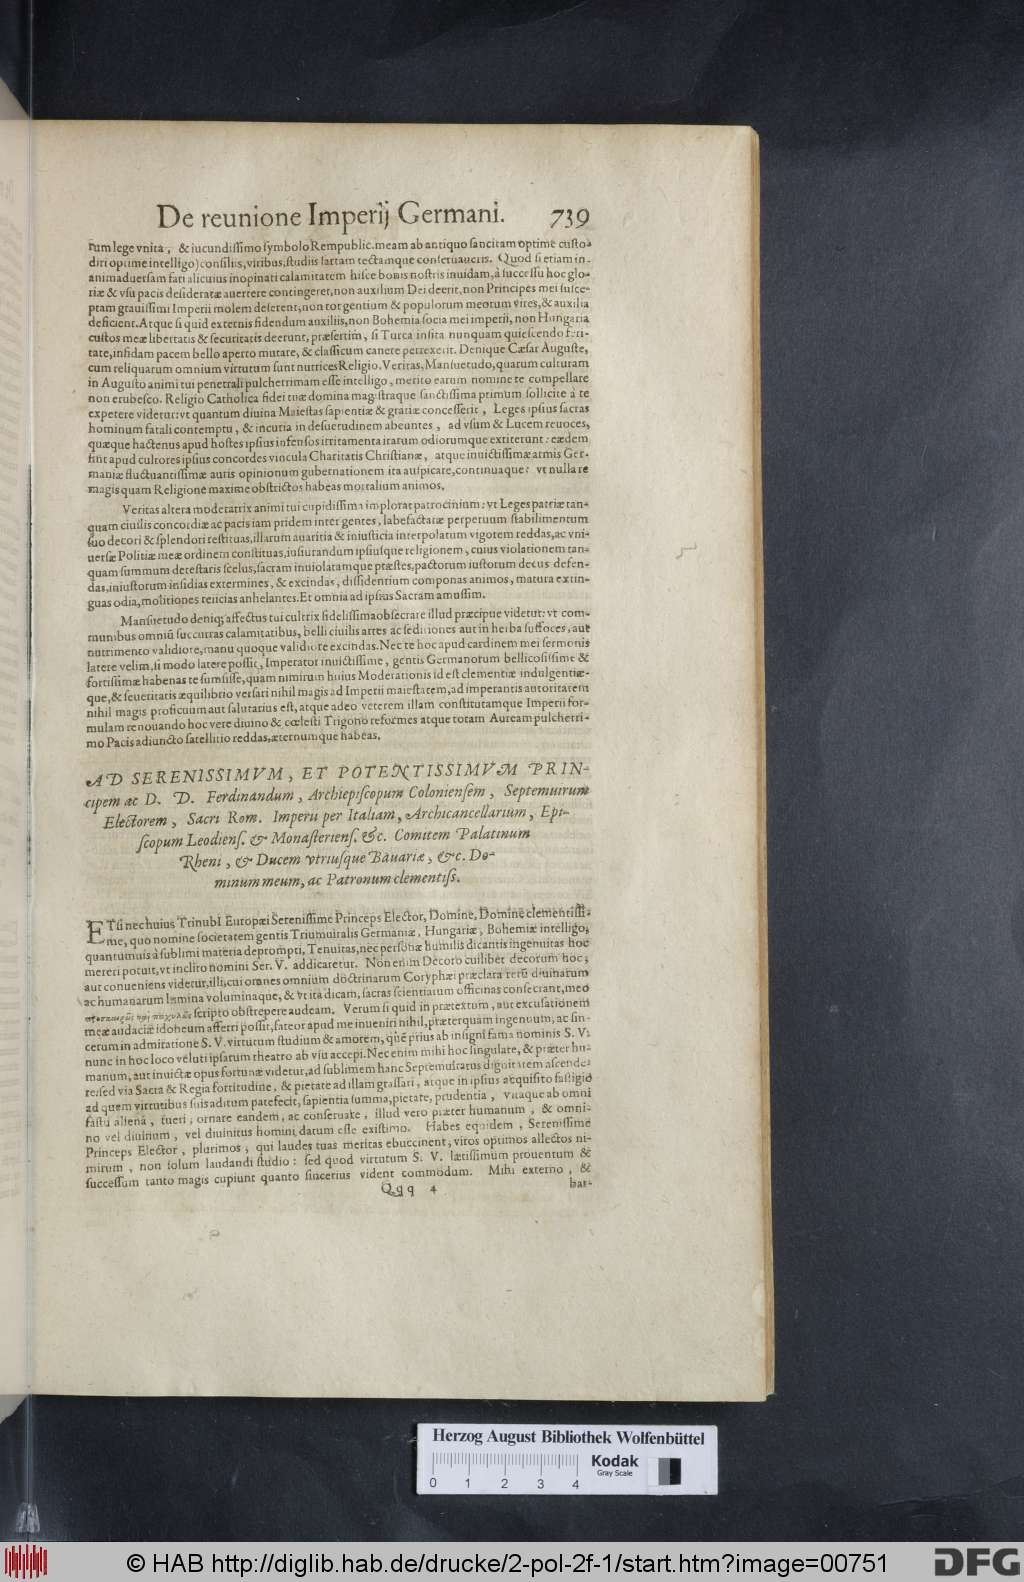 De reunione Imperij Germani. 739
rum lege vnita, & iucundissimo symbolo Rempublic. meam ab antiquo sancitam optime custo-
diri optime intelligo) consiliis, viribus, studiis sartam tectamque conseruaueris. Quod si etiam in-
animaduersam fati alicuius inopinati calamitatem hisce bonis nostris inuidam, à successu hoc glo-
riæ & vsu pacis desideratæ auertere contingeret, non auxilium Dei deerit, non Principes mei susce-
ptam grauissimi Imperii molem deserent, non tot gentium & populorum meorum vires, & auxilia
deficient. Atque si quid externis fidendum auxiliis, non Bohemia socia mei imperii, non Hungaria
custos meæ libertatis & securitatis deerunt, præsertim, si Turca insita nunquam quiescendo feri-
tate, infidam pacem bello aperto mutare, & classicum canere perrexerit. Denique Cæsar Auguste,
cum reliquarum omnium virtutum sunt nutrices Religio, Veritas, Mansuetudo, quarum culturam
in Augusto animi tui penetrali pulcherrimam esse intelligo, merito earum nomine te compellare
non erubesco. Religio Catholica fidei tuæ domina magistraque sanctissima primum sollicite à te
expetere videtur: vt quantum diuina Maiestas sapientiæ & gratiæ concesserit, Leges ipsius sacras
hominum fatali contemptu, & incuria in desuetudinem abeuntes, ad vsum & Lucem reuoces,
quæque hactenus apud hostes ipsius infensos irritamenta irarum odiorumque extiterunt: eædem
sint apud cultores ipsius concordes vincula Charitatis Christianæ, atque inuictissimæ armis Ger-
maniæ fluctuantissimæ auris opinionum gubernationem ita auspicare, continuaque: vt nulla re
magis quam Religione maxime obstrictos habeas mortalium animos.
Veritas altera moderatrix animi tui cupidissima implorat patrocinium: vt Leges patriæ tan-
quam ciuilis concordiæ ac pacis iam pridem inter gentes, labefactatæ perpetuum stabilimentum
suo decori & splendori restituas, illarum auaritia & iniusticia interpolatum vigorem reddas, ac vni-
uersæ Politiæ meæ ordinem constituas, iusiurandum ipsiusque religionem, cuius violationem tan-
quam summum detestaris scelus, sacram inuiolatamque præstes, pactorum iustorum decus defen-
das, iniustorum insidias extermines, & excindas, dissidentium componas animos, matura extin-
guas odia, molitiones reiicias anhelantes. Et omnia ad ipsius Sacram amussim.
Mansuetudo deniq; affectus tui cultrix fidelissima obsecrare illud præcipue videtur: vt com-
munibus omniũ succurras calamitatibus, belli ciuilis artes ac seditiones aut in herba suffoces, aut
nutrimento validiore, manu quoque validiore excindas. Nec te hoc apud cardinem mei sermonis
latere velim, si modo latere possit, Imperator inuictissime, gentis Germanorum bellicosissime &
fortissimæ habenas te sumsisse, quam nimirum huius Moderationis id est clementiæ indulgentiæ-
que, & seueritatis æquilibrio versari nihil magis ad Imperii maiestatem, ad imperantis autoritatem
nihil magis proficuum aut salutarius est, atque adeo veterem illam constitutamque Imperii for-
mulam renouando hoc vere diuino & cœlesti Trigono reformes atque totam Auream pulcherri-
mo Pacis adiuncto satellitio reddas, æternumque habeas.
AD SERENISSIMVM, ET POTENTISSIMVM PRIN-
cipem ac D. D. Ferdinandum, Archiepiscopum Coloniensem, Septemuirum
Electorem, Sacri Rom. Imperii per Italiam, Archicancellarium, Epi-
scopum Leodiens. & Monasteriens. &c. Comitem Palatinum
Rheni, & Ducem vtriusque Bauariæ, &c. Do-
minum meum, ac Patronum clementiss.
ETsi nec huius Trinubi Europæi Serenissime Princeps Elector, Domine, Domine clementissi-
me, quo nomine societatem gentis Triumuiralis Germaniæ, Hungariæ, Bohemiæ intelligo,
quantumuis à sublimi materia deprompti, Tenuitas, nec personæ humilis dicantis ingenuitas hoc
mereri potuit, vt inclito nomini Ser. V. addicaretur. Non enim Decoro cuilibet decorum hoc,
aut conueniens videtur, illi, cui omnes omnium doctrinarum Coryphæi præclara rerũ diuinarum
ac humanarum lumina voluminaque, & vt ita dicam, sacras scientiarum officinas consecrant, meo
scripto obstrepere audeam. Verum si quid in prætextum, aut excusationem
meæ audaciæ idoneum afferri possit, fateor apud me inueniri nihil, præterquam ingenuum, ac sin-
cerum in admiratione S. V. virtutum studium & amorem, quẽ prius ab insigni fama nominis S. V.
nunc in hoc loco veluti ipsarum theatro ab vsu accepi. Nec enim mihi hoc singulare, & præter hu-
manum, aut inuictæ opus fortunæ videtur, ad sublimem hanc Septemuiratus dignitatem ascende-
re: sed via Sacra & Regia fortitudine, & pietate ad illam grassari, atque in ipsius acquisito fastigio
ad quem virtutibus suis aditum patefecit, sapientia summa, pietate, prudentia, vitaque ab omni
fastu aliena, tueri, ornare eandem, ac conseruate, illud vero præter humanum, & omni-
no vel diuinum, vel diuinitus homini datum esse existimo. Habes equidem, Serenissime
Princeps Elector, plurimos, qui laudes tuas meritas ebuccinent, viros optimos allectos ni-
mirum, non solum laudandi studio: sed quod virtutum S. V. lætissimum prouentum &
successum tanto magis cupiunt quanto sincerius vident commodum. Mihi externo, &
Qqq 4 bar-
Herzog August Bibliothek Wolfenbüttel
Kodak
Gray Scale
0 1 2 3 4
© HAB http://diglib.hab.de/drucke/2-pol-2f-1/start.htm?image=00751
DFG